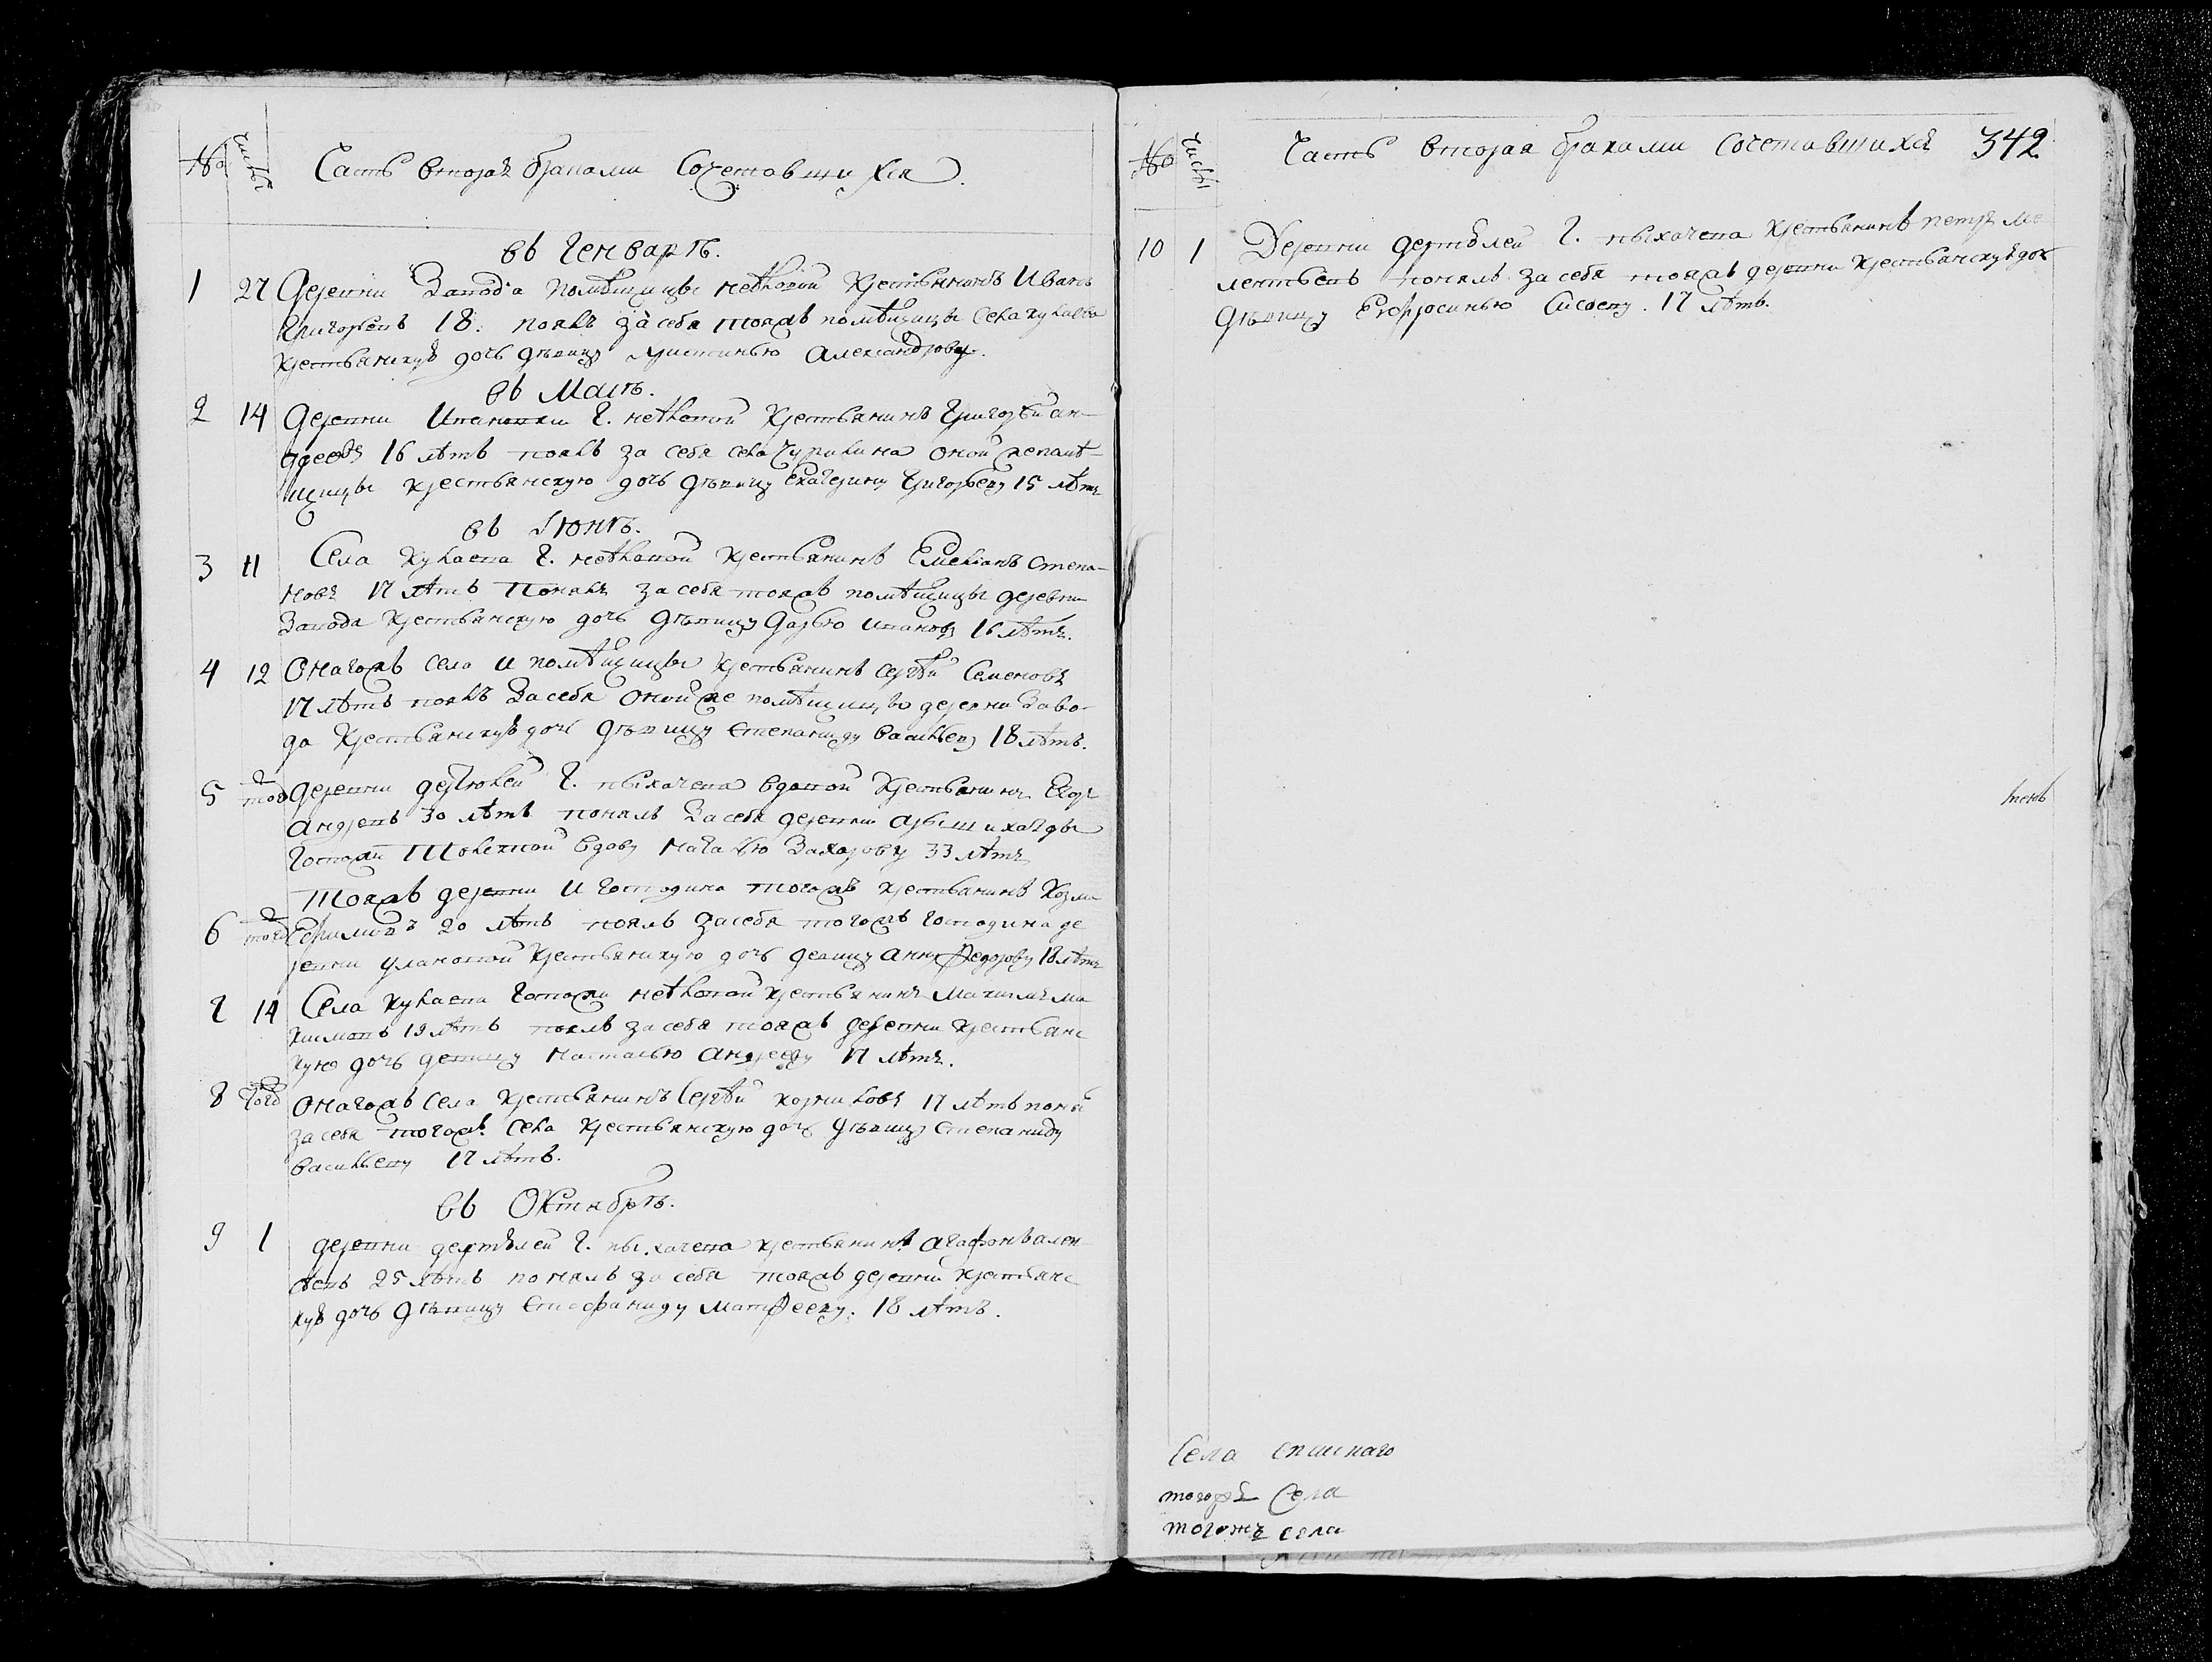 № Числъ Часть вторая браками Сочетавшихся.
въ Генварѣ.
1 27 Деревни Завода помѣщицы неѣловой крестьянинъ Иванъ
Григорьевъ 18. поялъ за себя тояжъ помѣщицы села кулаева
крестьянскую дочь дѣвицу христинью Александрову.
въ Маіѣ.
2 14 Деревни Ивановки Г. неѣловой крестьянинъ Григорьи ан-
дреевъ 16 лѣтъ поялъ за себя села чурилина оной же помѣ-
щицы крестьянскую дочь дѣвицу екатерину григорьеву 15 лѣтъ
въ Іюнѣ.
3 11 Села Кулаева Г. неѣловой крестьянинъ Емельянъ степа-
новъ 17 лѣтъ Понялъ за себя тояжъ помѣщицы деревни
Завода крестьянскую дочь дѣвицу дарью иванову 16 лѣтъ.
4 12 Оногожъ села и помѣщицы крестьянинъ сергѣй Семеновъ
17 лѣтъ поялъ за себя оной же помѣщицы деревни Заво-
да крестьянскую дочь дѣвицу степаниду васильеву 18 лѣтъ.
5 тогд деревни Г. пыхачева вдовой крестьянинъ Егор
андреевъ 30 лѣтъ понялъ за себя деревни
Госпожи вдову наталью Захарову 33 лѣтъ
Тояжъ деревни и господина тогожъ крестьянинъ Козма
6 тогд Ефимовъ 20 лѣтъ поялъ за себя тогожъ господина де
ревни улановой крестьянскую дочь девицу анну Федорову 18 лѣтъ
7 14 Села кулаева Госпожи неѣловой крестьянинъ Максимъ ма
ксимовъ 19 лѣтъ поялъ за себя тояжъ деревни крестьянс
кую дочь девицу настасью андрееву 17 лѣтъ.
8 тогд Оногожъ села крестьянинъ Сергѣй козминовъ 17 лѣтъ понял
за себя тогожъ села крестьянскую дочь дѣвицу степаниду
васильеву 17 лѣтъ.
въ Октябрѣ.
9 1 деревни Г. пыхачева крестьянинъ агафонъ
25 лѣтъ понялъ за себя тояжъ деревни крестьянс
кую дочь дѣвицу стефаниду матфееву. 18 лѣтъ.
№ Числъ Часть вторая браками Сочетавшихся 342
10 1 Деревни Г. пыхачева крестьянинъ петръ ме
лентьевъ понялъ за себя тояжъ деревни крестьянскую доч
дѣвицу Ефросинью Сисоеву. 17 лѣтъ.
Села
тогожъ Села
тогожъ села